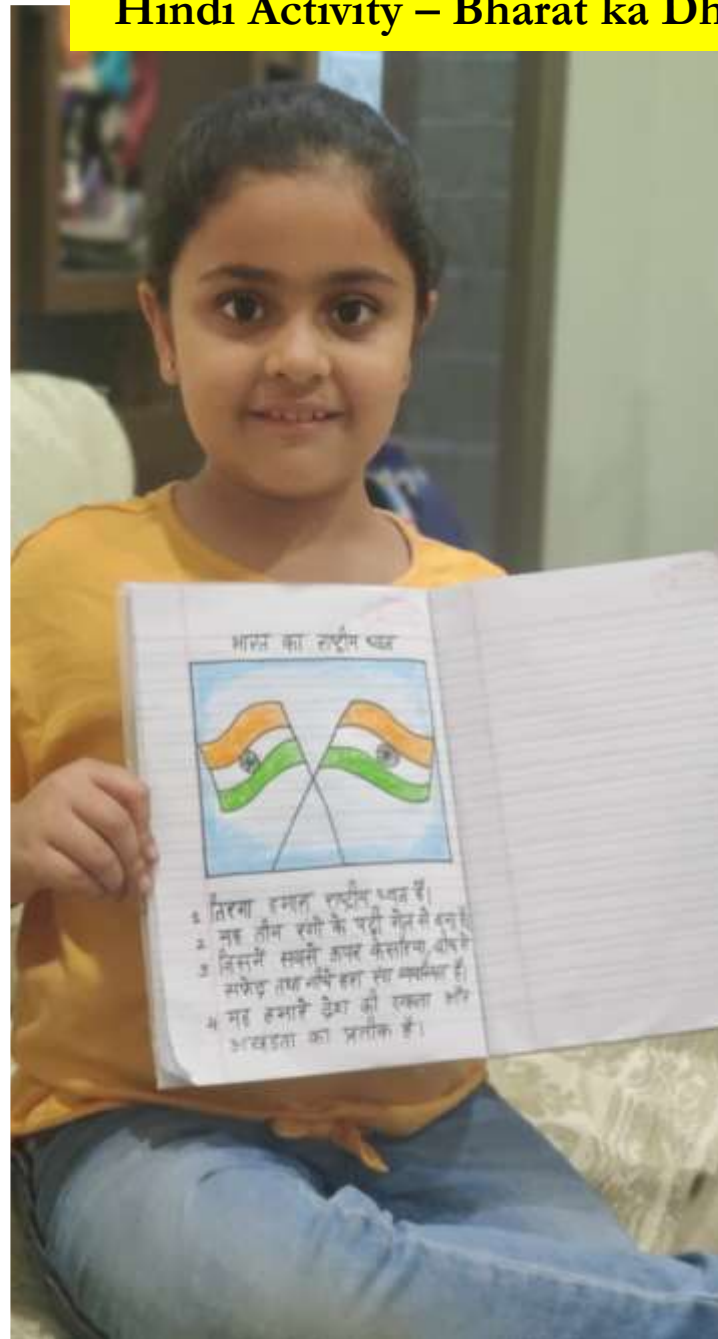 Hindi Activity – Bharat ka Dh
भारत का राष्ट्रीय ध्वज
1 तिरंगा हमारा राष्ट्रीय ध्वज है।
2 यह तीन रंगों के पट्टी मेल से बना है
3 जिसमें सबसे ऊपर केसरिया, बीच में
सफेद तथा नीचे हरा रंग है।
4 यह हमारे देश की एकता और
अखंडता का प्रतीक है।